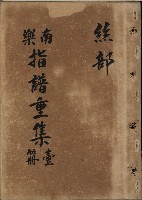 絲部
南樂指譜重集
壹冊